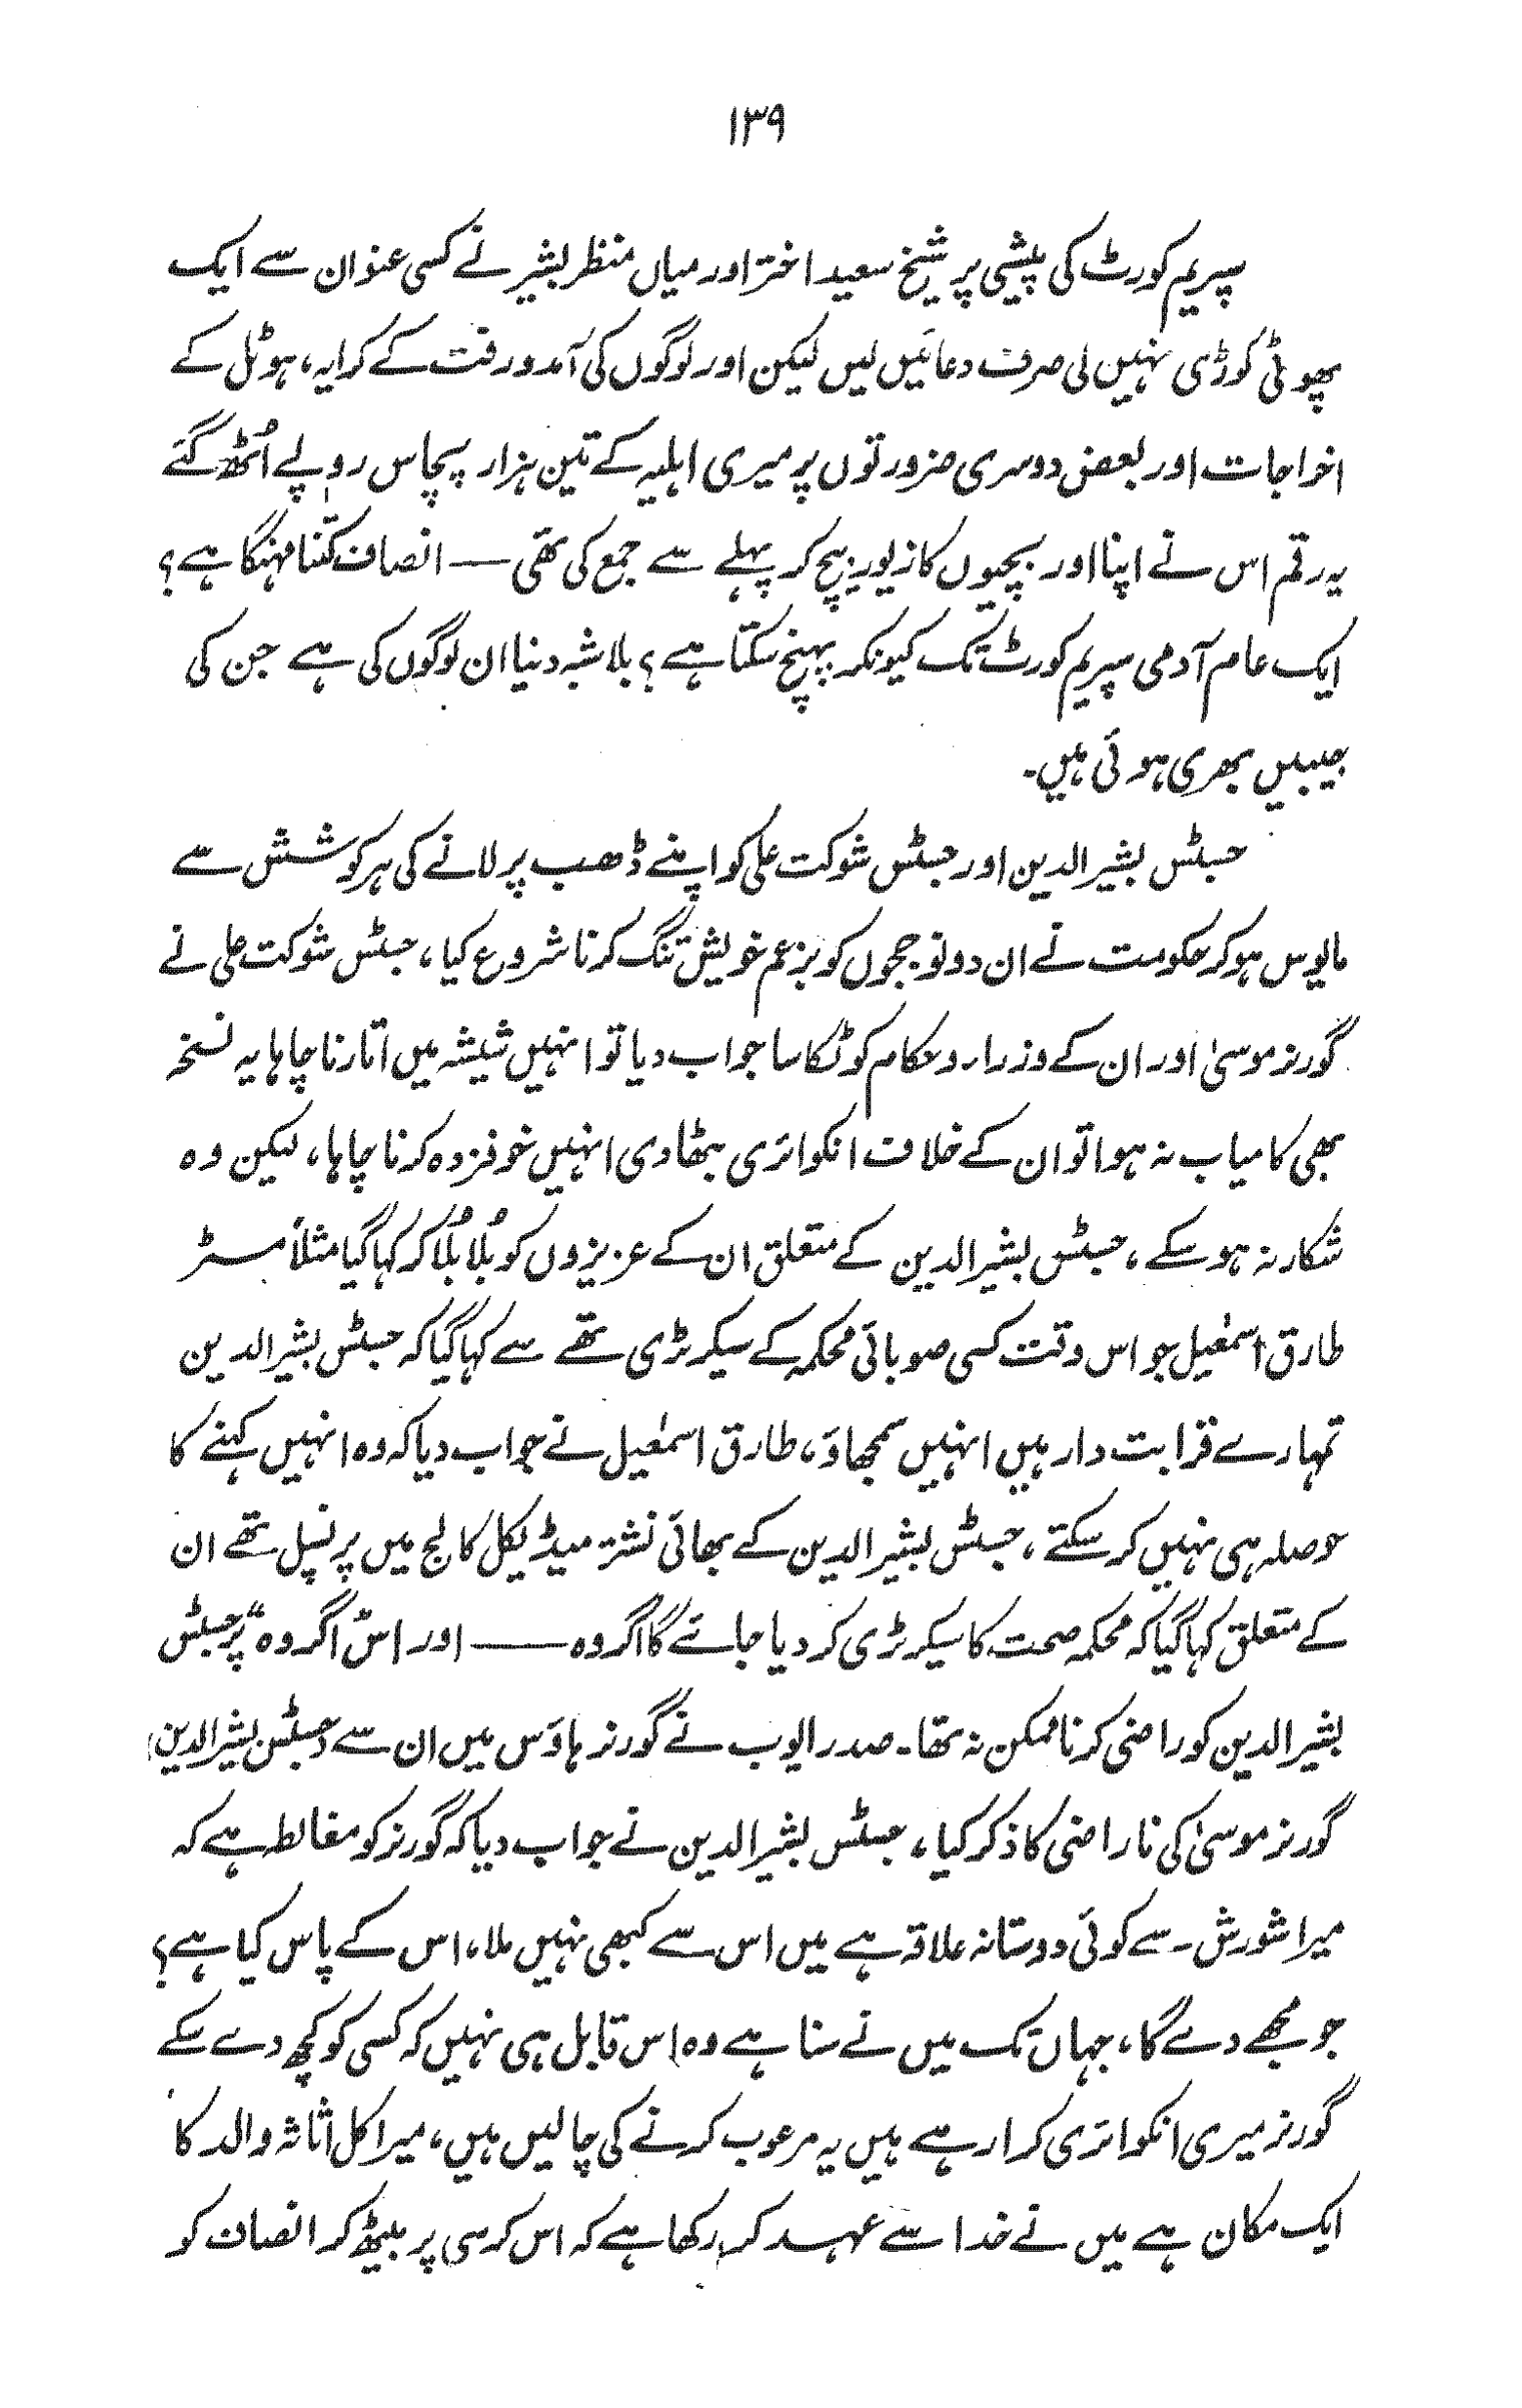 ۱۳۹
سپریم کورٹ کی پیشی پر شیخ سعید اختر اور میاں منظر بشیر نے کسی عنوان سے ایک
پھوٹی کوڑی نہیں لی صرف دعائیں لیں لیکن اور لوگوں کی آمد ورفت کے کرایہ، ہوٹل کے
اخراجات اور بعض دوسری ضرورتوں پر میری اہلیہ کے تین ہزار پچاس روپے اُٹھ گئے
یہ رقم اس نے اپنا اور بچیوں کا زیور بیچ کر پہلے سے جمع کی تھی — انصاف کتنا مہنگا ہے؟
ایک عام آدمی سپریم کورٹ تک کیونکر پہنچ سکتا ہے؟ بلاشبہ دنیا ان لوگوں کی ہے جن کی
جیبیں بھری ہوئی ہیں۔
جسٹس بشیر الدین اور جسٹس شوکت علی کو اپنے ڈھب پر لانے کی ہر کوشش سے
مایوس ہو کر حکومت نے ان دونو ججوں کو بزعم خویش تنگ کرنا شروع کیا، جسٹس شوکت علی نے
گورنر موسیٰ اور ان کے وزراء و حکام کو ٹکا سا جواب دیا تو انہیں شیشہ میں اتارنا چاہا یہ نسخہ
بھی کامیاب نہ ہوا تو ان کے خلاف انکوائری بٹھا دی انہیں خوفزدہ کرنا چاہا، لیکن وہ
شکار نہ ہو سکے، جسٹس بشیر الدین کے متعلق ان کے عزیزوں کو بُلا بُلا کر کہا گیا مثلاً مسٹر
طارق اسمٰعیل جو اس وقت کسی صوبائی محکمہ کے سیکرٹری تھے سے کہا گیا کہ جسٹس بشیر الدین
تمہارے قرابت دار ہیں انہیں سمجھاؤ، طارق اسمٰعیل نے جواب دیا کہ وہ انہیں کہنے کا
حوصلہ ہی نہیں کر سکتے، جسٹس بشیر الدین کے بھائی نشتر میڈیکل کالج میں پرنسپل تھے ان
کے متعلق کہا گیا کہ محکمہ صحت کا سیکرٹری کر دیا جائے گا اگر وہ —— اور اس "اگر وہ" پر جسٹس
بشیر الدین کو راضی کرنا ممکن نہ تھا۔ صدر ایوب نے گورنر ہاؤس میں ان سے (جسٹس بشیر الدین)
گورنر موسیٰ کی ناراضی کا ذکر کیا، جسٹس بشیر الدین نے جواب دیا کہ گورنر کو مغالطہ ہے کہ
میرا شورش ۔ سے کوئی دوستانہ علاقہ ہے میں اس سے کبھی نہیں ملا، اس کے پاس کیا ہے؟
جو مجھے دے گا، جہاں تک میں نے سنا ہے وہ اس قابل ہی نہیں کہ کسی کو کچھ دے سکے
گورنر میری انکوائری کرا رہے ہیں یہ مرعوب کرنے کی چالیں ہیں، میرا کل اثاثہ والد کا
ایک مکان ہے میں نے خدا سے عہد کر رکھا ہے کہ اس کرسی پر بیٹھ کر انصاف کو